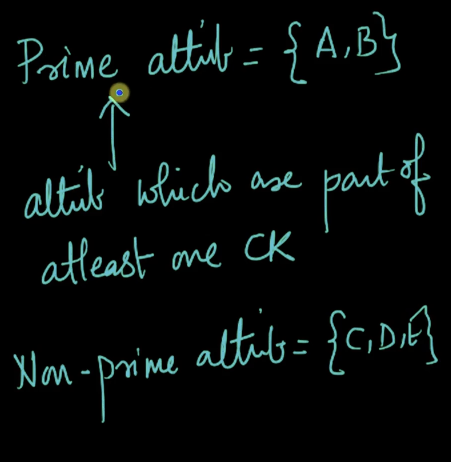 Prime attrib = {A,B}
attrib which are part of
atleast one CK
Non-prime attrib = {C,D,E}